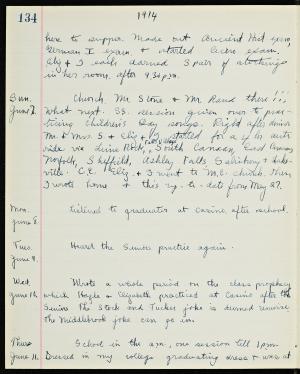 134
1914
here to supper. Made out Ancient Hist. exam,
German I exam & started exam.
Ely & I each darned 3 pair of stockings
in her room, after 9:30 p.m.
Sun.
June 7.
Church. Mr. Stone & Mr. Rand there!!!
What next. S.S. session given over to prac-
ticing Children's Day songs. Right after this
Mr. & Mrs. S & Ely & I started for a 4 hr. auto
ride via Lime Rock, South Canaan, East Canaan,
Norfolk, Sheffield, Ashley Falls, Salisbury & Lake-
ville. C.E. Ely & I went to M.E. church. Then
I wrote home & this up to date from May 27.
Mon.
June 8.
Listened to graduates at Casino after school.
Tues.
June 9.
Heard the Seniors practice again.
Wed.
June 10.
Wrote a whole period on the class prophecy
which Hoyle & Elizabeth practiced at Casino after the
Seniors. The Stock and Tucker joke is
the Middlebrook joke can go in.
Thurs.
June 11.
School in the a.m., one session till 1 p.m.
Dressed in my college graduating dress & was at